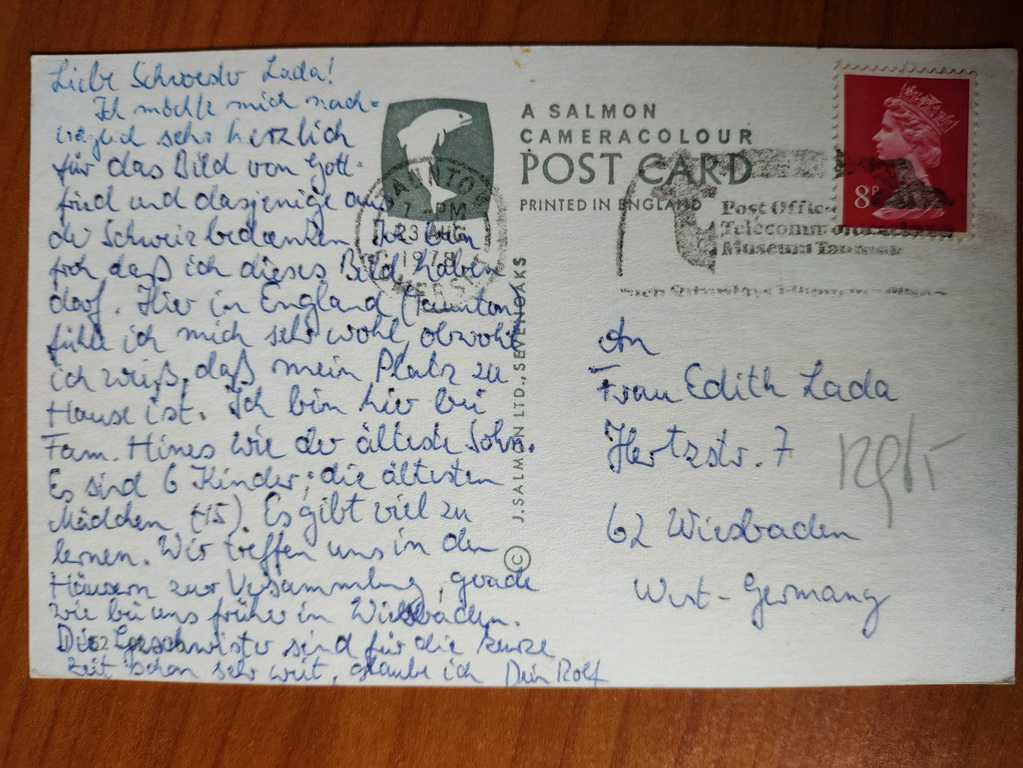 Liebe Schwester Lada!
Ich möchte mich nach=
trägend sehr herzlich
für das Bild von Gott=
fried und dasjenige aus
der Schweiz bedanken.
froh daß ich dieses Bild haben
darf. Hier in England (Taunton
fühle ich mich sehr wohl, obwohl
ich weiß, daß mein Platz zu
Hause ist. Ich bin hier bei
Fam. Hines wie der älteste Sohn.
Es sind 6 Kinder; die ältesten
Mädchen (15). Es gibt viel zu
lernen. Wir treffen uns in den
Häusern zur Versammlung, gerade
wie bei uns früher in Wiesbaden.
Die Geschwister sind für die kurze
Zeit schon sehr weit, glaube ich Dein Rolf
A SALMON
CAMERACOLOUR
POST CARD
PRINTED IN ENGLAND
© J. SALMON LTD., SEVENOAKS
TAUNTON
7 - PM
23 AUG
1978
SOMERSET
Post Office
Telecommunications
Museum Taunton
8P
An
Frau Edith Lada
Hertzstr. 7
62 Wiesbaden
West-Germany